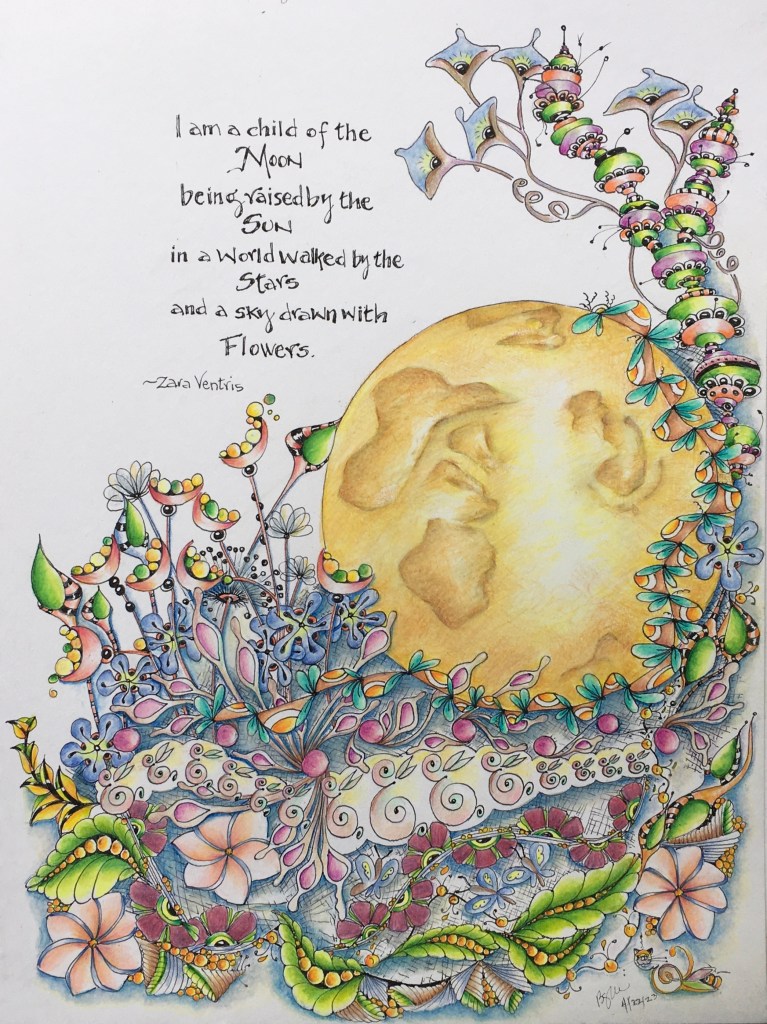 I am a child of the
Moon
being raised by the
Sun
in a World walked by the
Stars
and a sky drawn with
Flowers.
~Zara Ventris
4/22/20